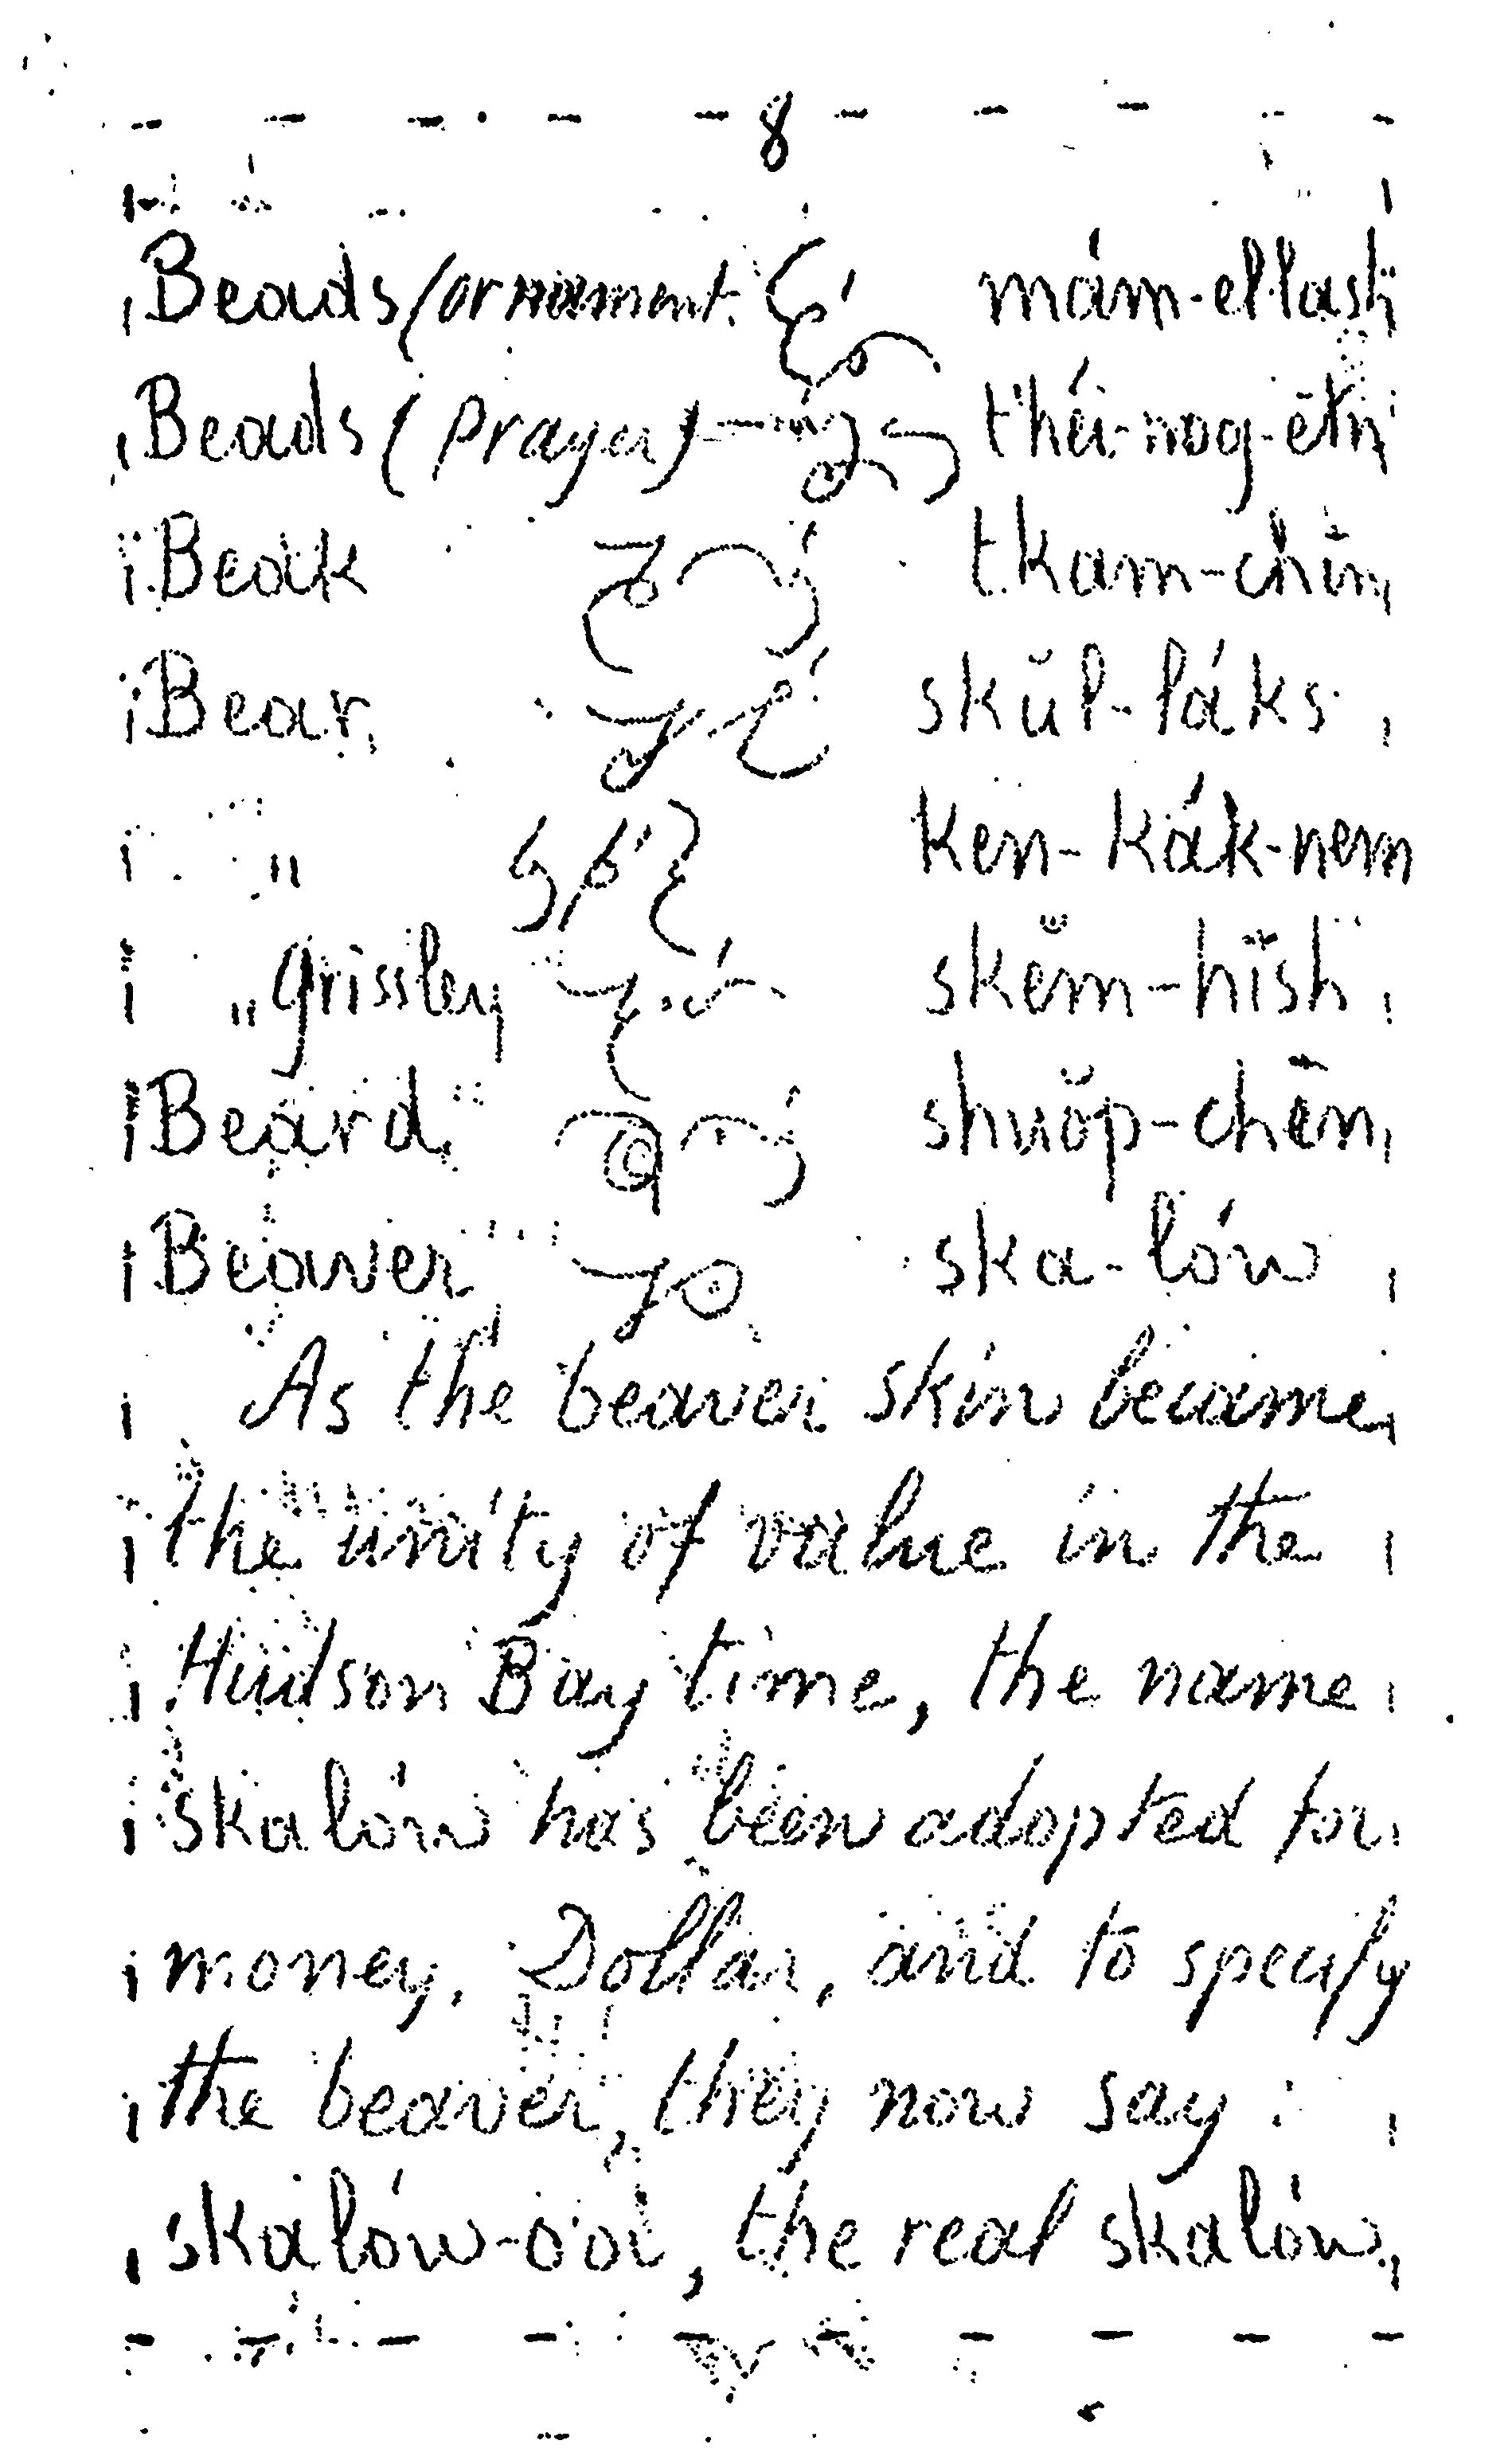 8
Beads (ornament. mám-el-lash
Beads (prayer)
Beak tkam-chin
Bear skŭl-láks
" Ken-kák-nem
" grissley skĕm-hīsh
Beard shuŏp-chēn
Beaver ska-lów
As the beaver skin became
the unity of value in the
Hudson Bay time, the name
skalów has been adopted for
money, Dollar, and to specify
the beaver, they now say:
skalów-oòi, the real skalów,